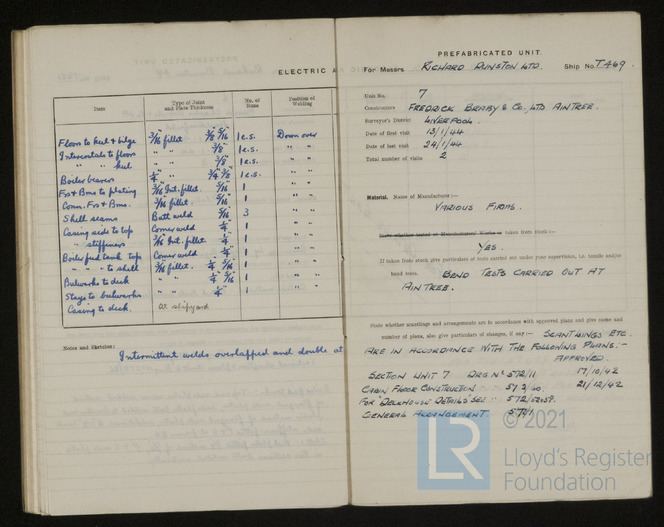 ELECTRIC A
Item Type of Joint and Plate Thickness No. of Runs Position of Welding
Floors to keel & bilge 3/16" fillet 3/8" 5/16" 1 e.s. Down over
Intercostals to floors " " 3/8" 1 e.s. " "
" " keel " " 3/8" 1 e.s. " "
Boiler bearers 1/4" " 3/4" 3/8" 1 e.s. " "
Frs & Bms to plating 3/16" Int. fillet. 5/16" 1 " "
Conn. Frs & Bms. 3/16" fillet. 5/16" 1 " "
Shell seams Butt weld 5/16" 3 " "
Casing side to top Corner weld 1/4" 1 " "
" stiffeners 3/16" Int. fillet. 1/4" 1 " "
Boiler feed tank top Corner weld 1/4" 1 " "
" " " to shell 3/16" fillet. 1/4" 5/16" 1 " "
Bulwarks to deck " " 1/4" 5/16" 1 " "
Stays to bulwarks " " 1/4" 1 " "
Casing to deck. at shipyard
Notes and Sketches:
Intermittent welds overlapped and double at
PREFABRICATED UNIT
For Messrs RICHARD DUNSTON LTD. Ship No. T469.
Unit No. 7
Constructors FREDRICK BRABY & CO., LTD AINTREE.
Surveyor's District LIVERPOOL.
Date of first visit 13/1/44
Date of last visit 24/1/44
Total number of visits 2
Material. Name of Manufacturer :—
VARIOUS FIRMS.
State whether tested at Manufacturers' Works or taken from stock :—
YES.
If taken from stock give particulars of tests carried out under your supervision, i.e. tensile and/or
bend tests. BEND TESTS CARRIED OUT AT
AINTREE.
State whether scantlings and arrangements are in accordance with approved plans and give name and
number of plans, also give particulars of changes, if any :— SCANTLINGS ETC.
ARE IN ACCORDANCE WITH THE FOLLOWING PLANS :-
APPROVED.
SECTION UNIT 7 DRG Nº 572/11 17/10/42
CABIN FLOOR CONSTRUCTION 21/12/42
FOR "DECKHOUSE DETAILS" SEE
GENERAL ARRANGEMENT
© 2021
LR
Lloyd's Register
Foundation